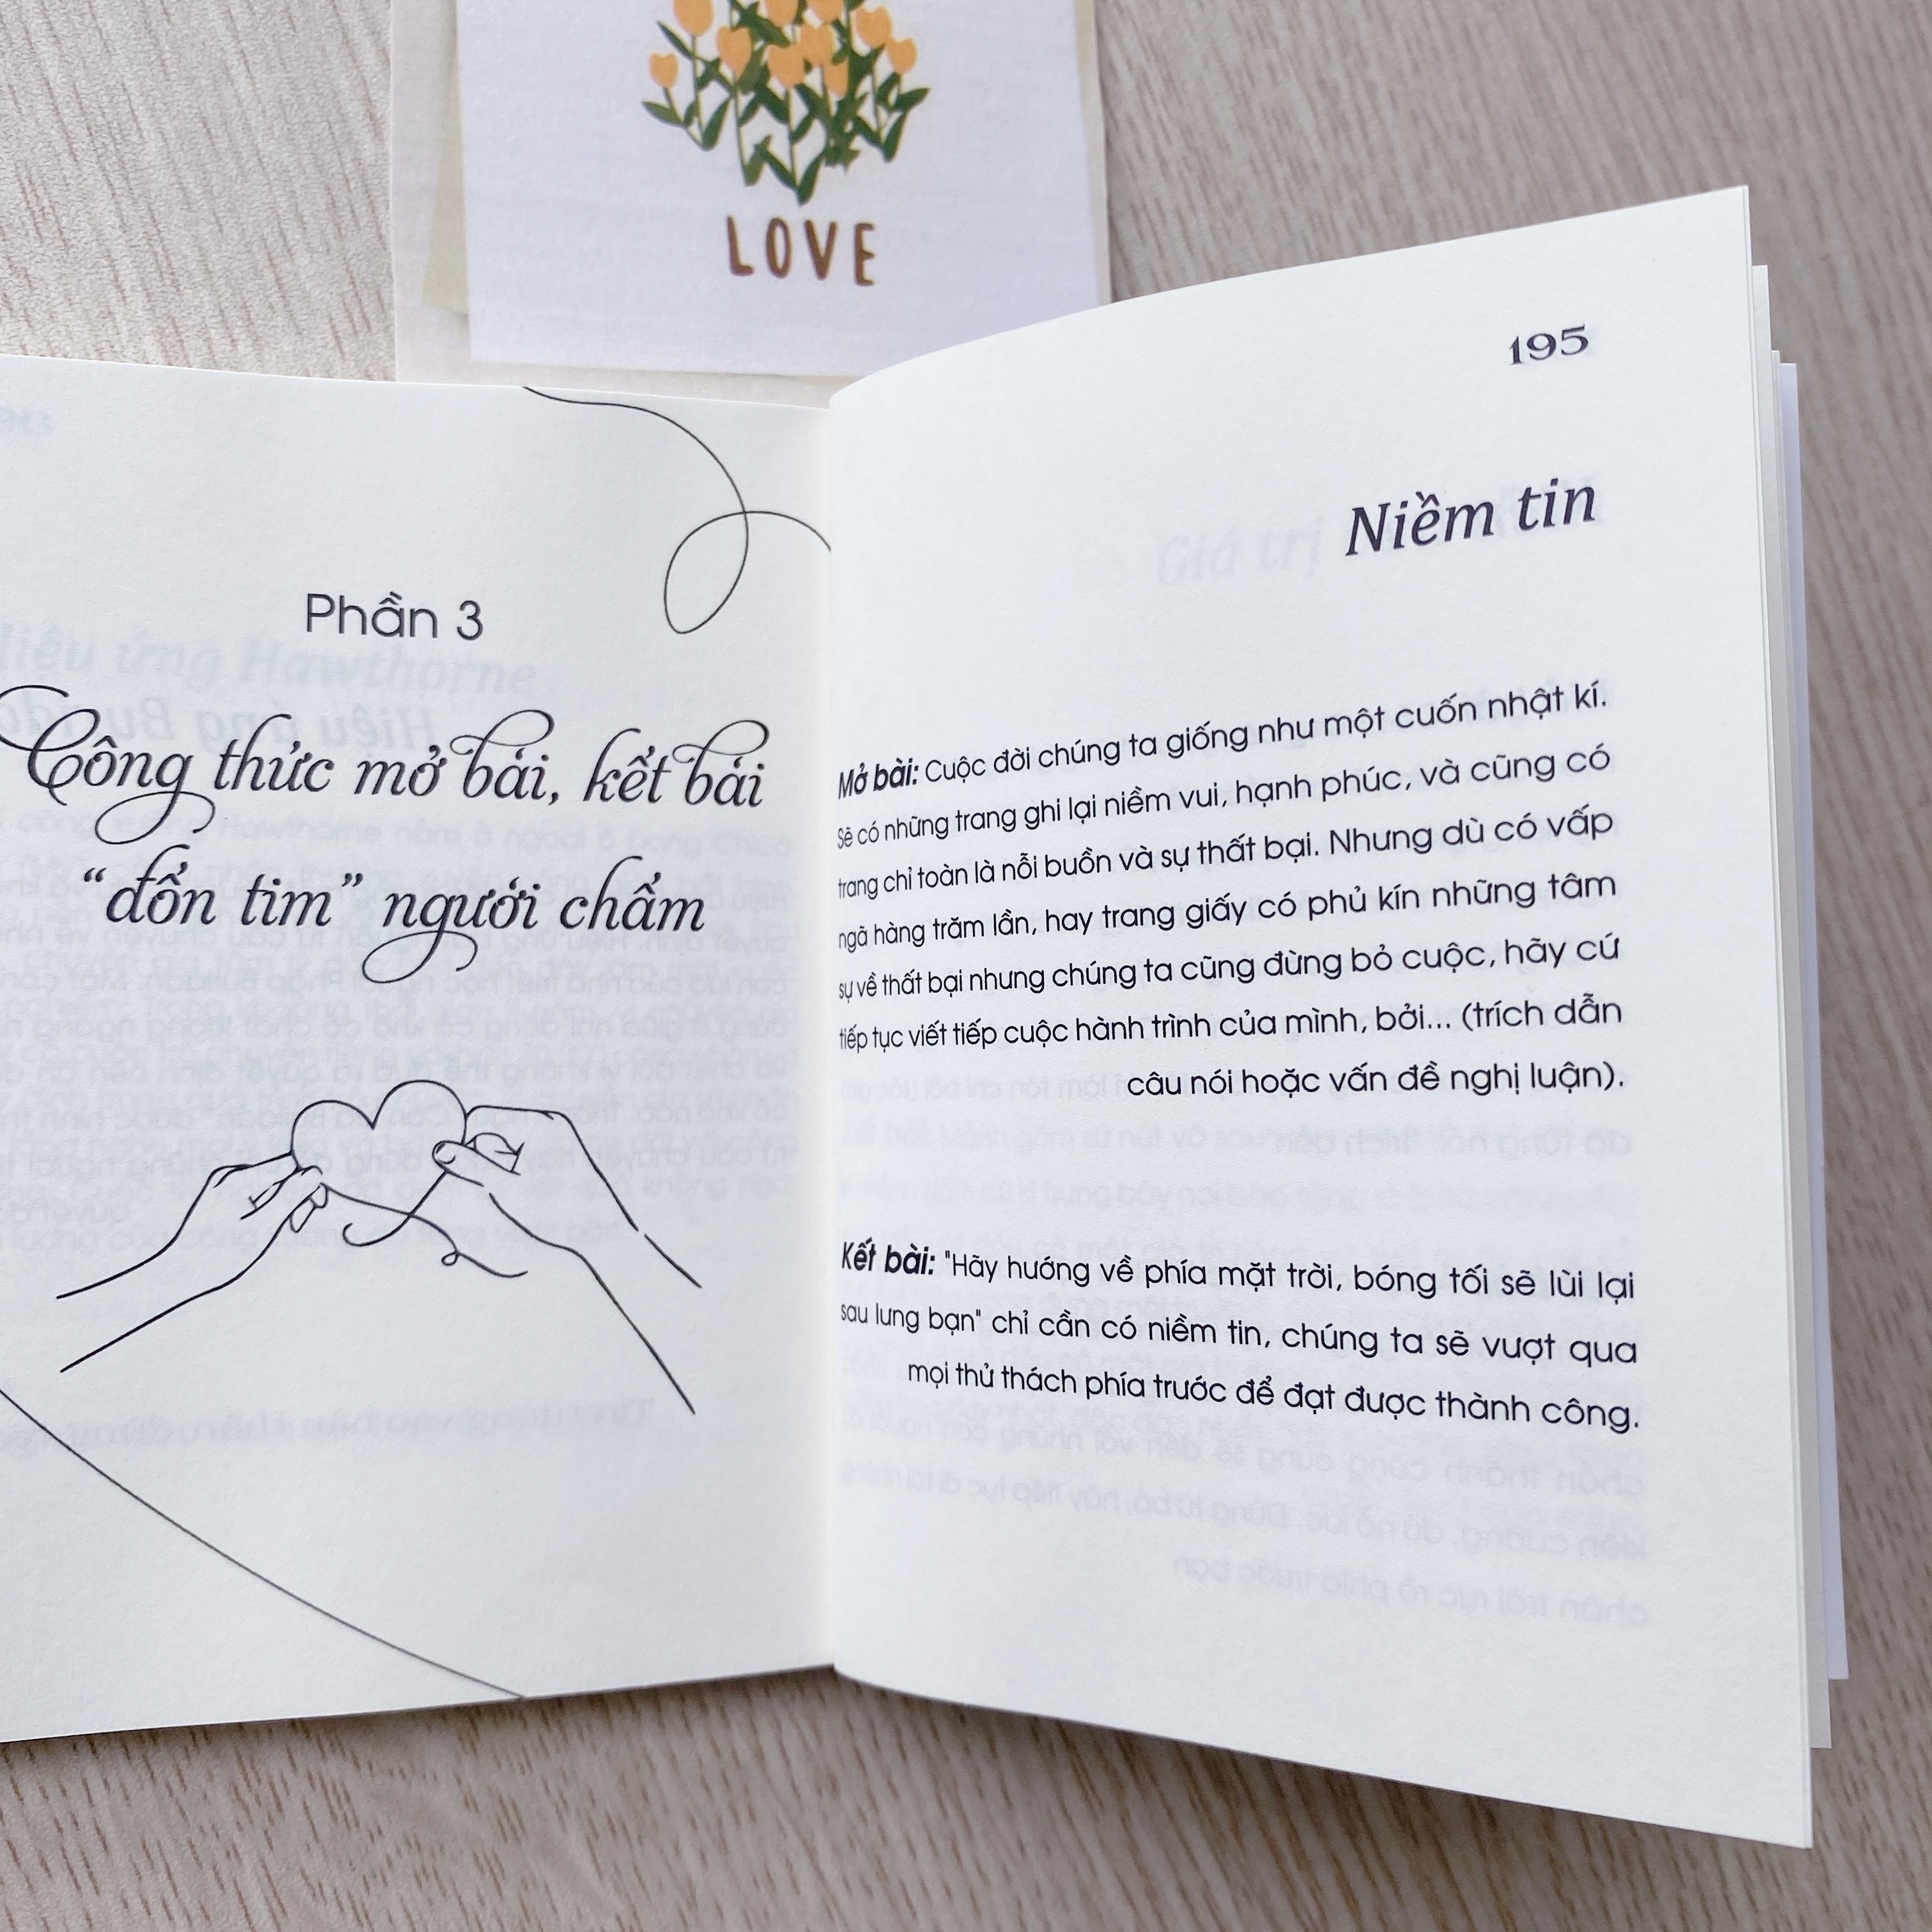 LOVE
Phần 3
Công thức mở bài, kết bài
“đổn tim” người chấm
195
Niềm tin
Mở bài: Cuộc đời chúng ta giống như một cuốn nhật kí.
Sẽ có những trang ghi lại niềm vui, hạnh phúc, và cũng có
trang chỉ toàn là nỗi buồn và sự thất bại. Nhưng dù có vấp
ngã hàng trăm lần, hay trang giấy có phủ kín những tâm
sự về thất bại nhưng chúng ta cũng đừng bỏ cuộc, hãy cứ
tiếp tục viết tiếp cuộc hành trình của mình, bởi... (trích dẫn
câu nói hoặc vấn đề nghị luận).
Kết bài: "Hãy hướng về phía mặt trời, bóng tối sẽ lùi lại
sau lưng bạn" chỉ cần có niềm tin, chúng ta sẽ vượt qua
mọi thử thách phía trước để đạt được thành công.